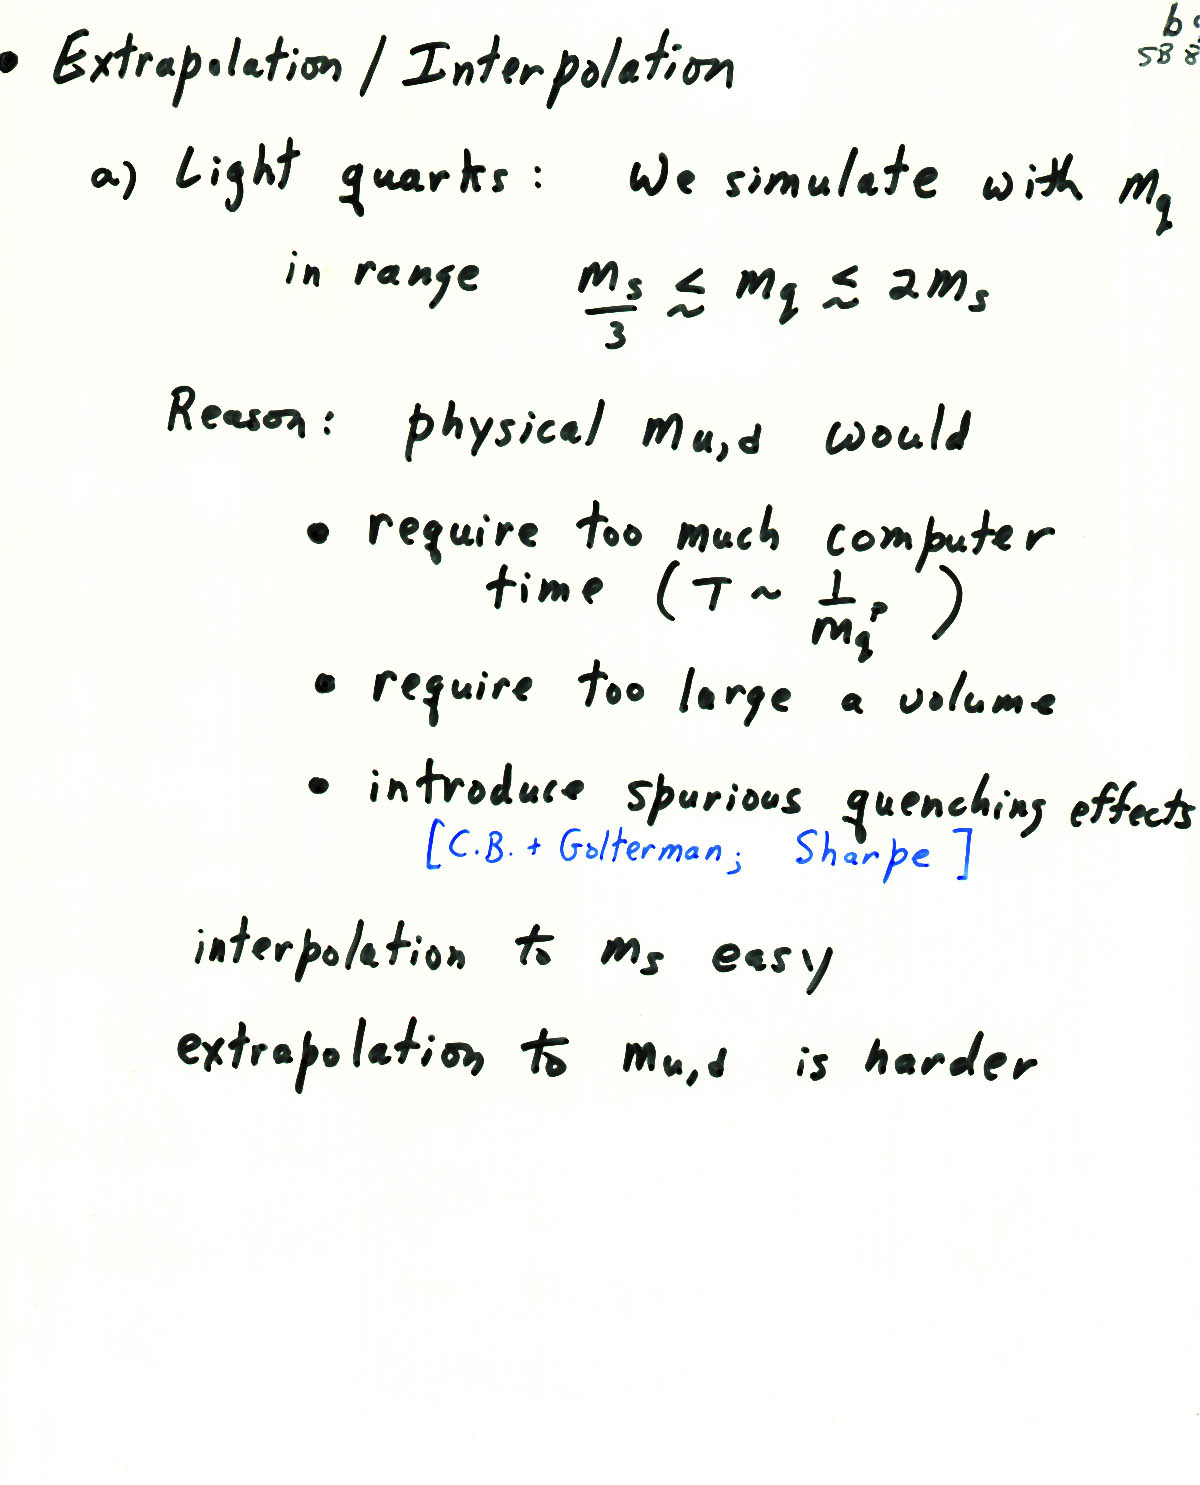 • Extrapolation / Interpolation
a) Light quarks: We simulate with m_q
in range m_s/3 ≲ m_q ≲ 2m_s
Reason: physical m_u,d would
• require too much computer
time (T ~ 1/m_q^p)
• require too large a volume
• introduce spurious quenching effects
[C.B. + Golterman; Sharpe]
interpolation to m_s easy
extrapolation to m_u,d is harder